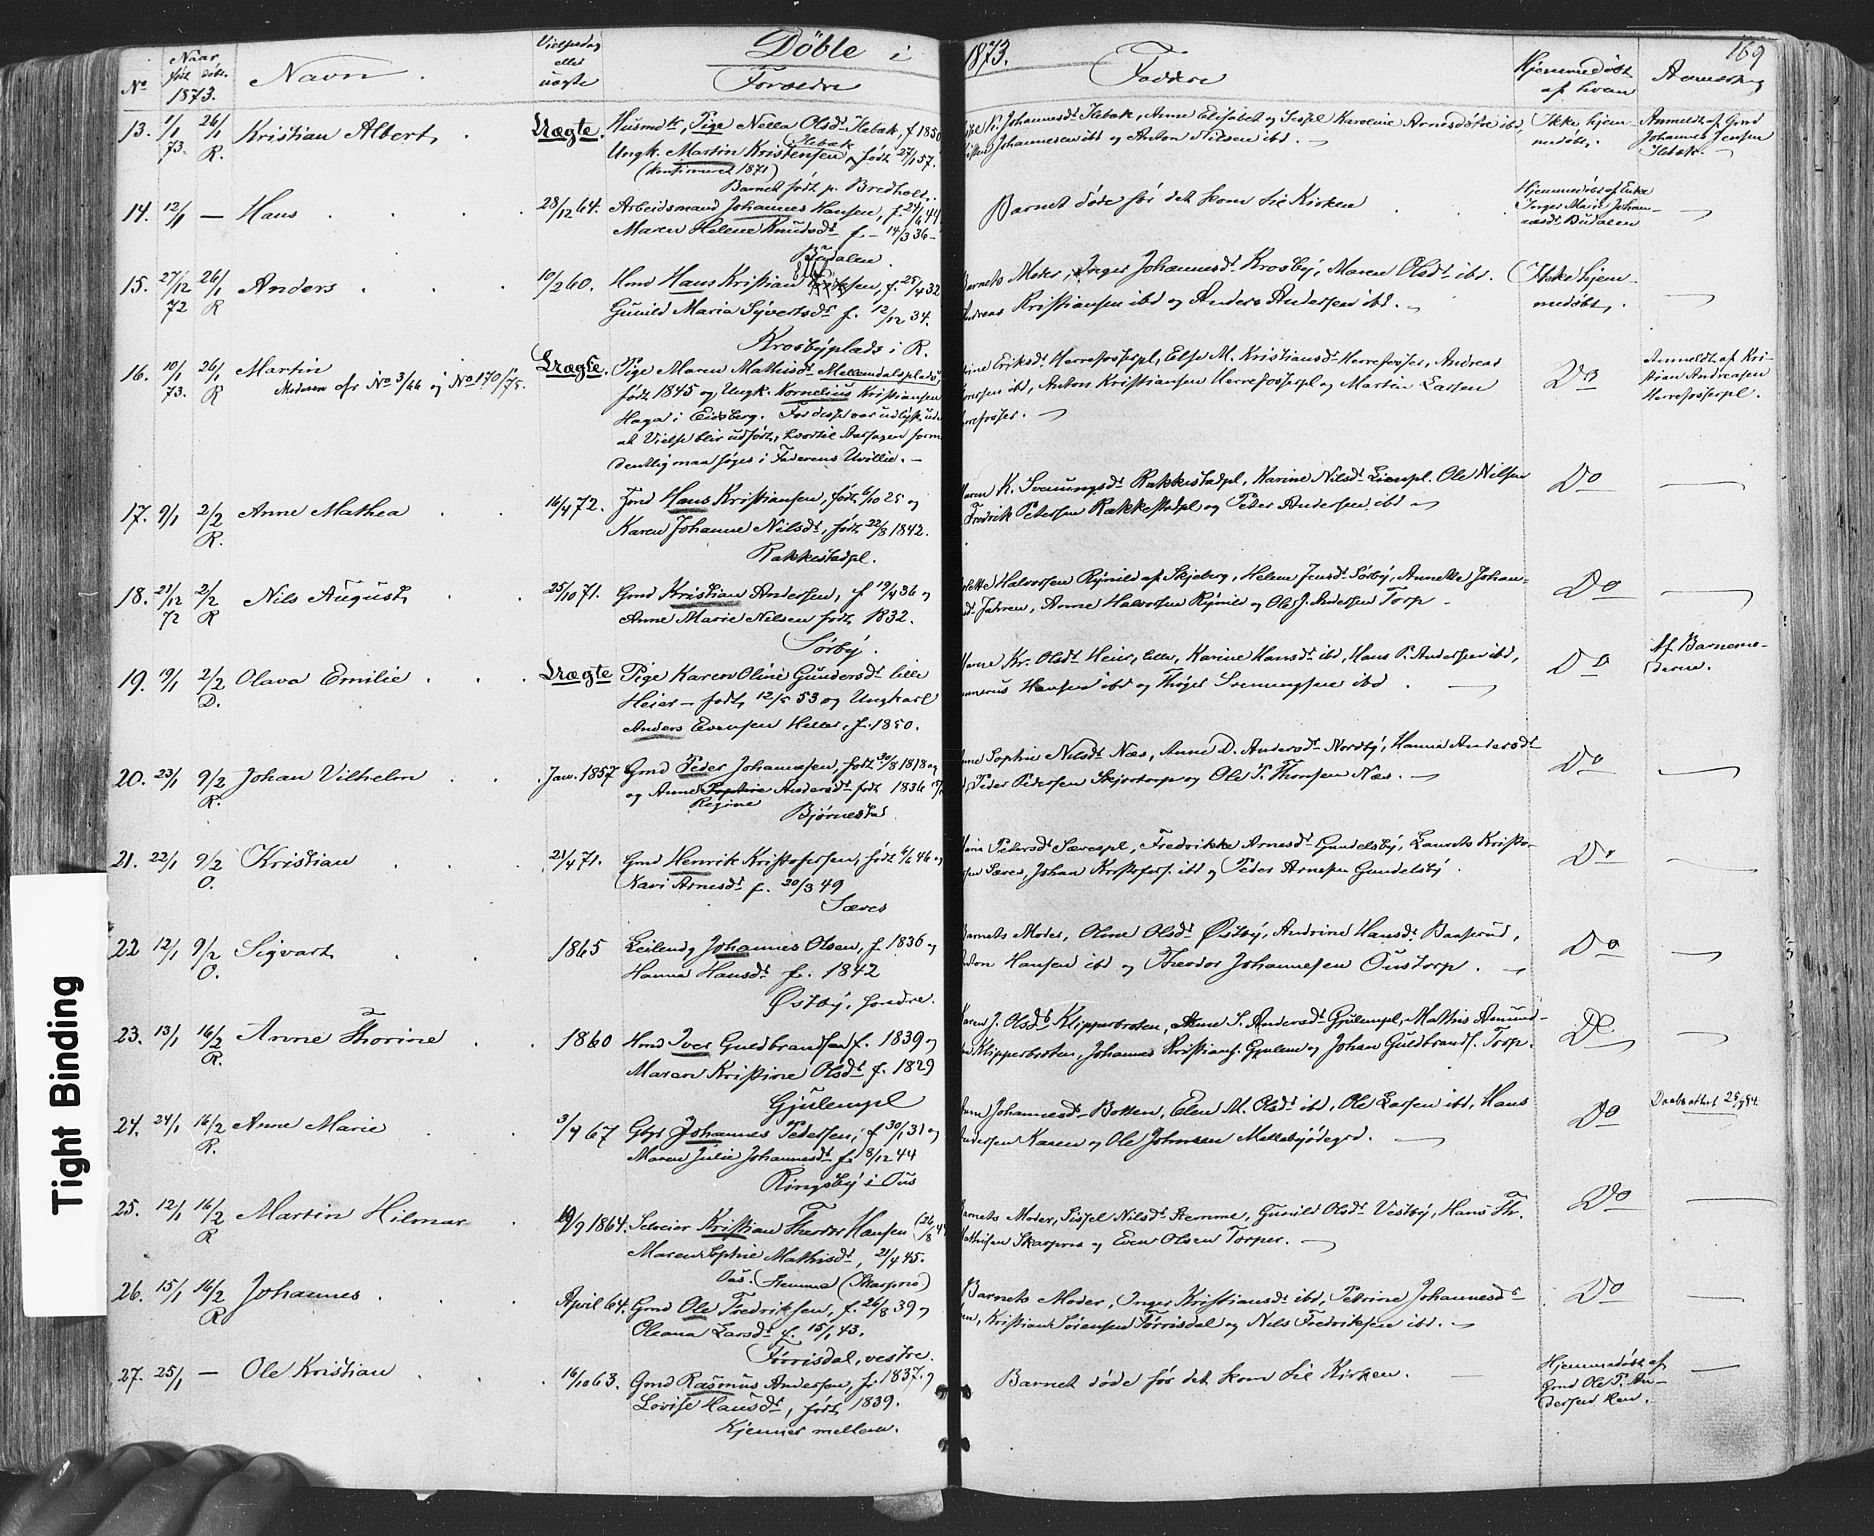 Döbte i 1873. 169
No Naar född döbt 1873. Navn Vielsesdag eller uægte Forældre Faddere Hjemmedøbt af hvem Anmerkng
13. 1/1 73. 26/1 R. Kristian Albert Uægte. Husmdtr, Pige Nella Olsdr Ilebæk, f. 1850
Ungk. Martin Kristensen Ilebæk født 27/1 57.
(konfirmeret 1871)
Barnet født p. Bredholt.
Johannesdr Ilebæk, Anne Elisabet og Sissel Karoline Arnesdøtre ibd,
Johannesen ibd og Anton Nilsen ibd.
Ikke hjemmedøbt.
Anmeldt af Gmd
Johannes Jensen
Ilebæk.
14. 12/1 — Hans 28/12 64. Arbeidsmand Johannes Hansen, f. 24/6 44
Maren Helene Knudsdr f. 14/3 36
Budalen.
Barnet døde før det kom til Kirken
Hjemmedøbt af Enke
Inger Marie Johan-
nesdr Budalen
15. 27/12 72 26/1 R Anders 10/2 60. Hmd Hans Kristian f. 25/4 32
Gunild Maria Syvertsdr f. 12/12 34.
Krosbyplads i R.
Barnets Moder, Inger Johannesdr Krosby, Maren Olsdr ibd.
Andreas Kristiansen ibd og Anders Andersen ibd.
Ikke hjem-
medøbt.
16. 10/1 73. 26/1 R Martin Uægte. Pige Maren Mathisdr Mellemdalsplads,
Moderen cfr No 3/46 og No 170/75.
født 1845 og Ungk. Kornelius Kristiansen
Haga i Eidsberg. For disse var udlyst uden
at Vielse blev udført, hvortil Aarsagen formo-
dentlig maa søges i Faderens Uvillie.
Eriksdr Herrefosserpl, Else M. Kristiansdr Herrefosser, Andreas
ibd, Anton Kristiansen Herrefosserpl og Martin Larsen
Herrefosser.
Do
Anmeldt af Kri-
stian Andreasen
Herrefosserpl.
17. 9/1 2/2 R. Anne Mathea 16/4 72. Jmd Hans Kristiansen, født 6/10 25 og
Karen Johanne Nilsdr, født 22/8 1842.
Rakkestadpl.
Maren K. Svenungsdr Rakkestadpl, Karine Nilsdr Lienpl. Ole Nilsen
Fredrik Petersen Rakkestadpl og Peder Andersen ibd
Do
18. 21/12 72 2/2 R Nils August 25/10 71. Gmd Kristian Andersen, f 19/4 36 og
Anne Marie Nilsen født 1832.
Sørby.
Halvorsen Rynild af Skjeberg, Helene Jensdr Sørby, Annette Johan-
Jahren, Anne Halvorsen Rynild og Ole J. Andersen Torp
Do
19. 19/1 2/2 D. Olava Emilie Uægte Pige Karen Oline Gundersdr lille
Heier - født 12/5 53 og Ungkarl
Anders Evensen Heller, f. 1850.
Kr. Olsdr Heier, lille, Karine Hansdr ibd, Hans P. Andersen ibd,
Gunnerus Hansen ibd og Thøger Svenungsen ibd
Do
Af Barnemo-
deren.
20. 23/1 9/2 R. Johan Vilhelm Jan. 1857 Gmd Peder Johannesen, født 30/8 1818 og
og Anne Sophie Andersdr født 1836
Regine
Bjørnestad
Sophie Nilsdr Næs, Anne D. Andersdr Nordby, Hanna Andersdr
Peder Pedersen Skjortorp og Ole P. Thomsen Næs.
Do
21. 22/1 9/2 O. Kristian 21/4 71. Gmd Henrik Kristofersen, født 6/6 46 og
Navi Arnesdr f. 30/3 49
Sæves
Petersdr Sævespl, Fredrikke Arnesdr Gundelsby, Laurits Kristo-
fersen Sæves, Johan Kristofers. ibd og Peder Arnesen Gundelsby.
Do
22 12/1 9/2 O. Sigvart 1865 Leilendg Johannes Olsen, f. 1836 og
Hanna Hansdr f. 1842
Østby, søndre.
Barnets Moder, Oline Olsdr Østby, Andrine Hansdr Baaserud,
Hansen ibd og Theodor Johannesen Oustorp.
Do
23. 13/1 16/2 R. Anne Thorine 1860 Hmd Iver Guldbrandsen f. 1839 og
Maren Kristine Olsdr f. 1829
Gjulempl
Karen J. Olsdr Klipperbroten, Anne S. Andersdr Gjulempl, Mathis Amund-
sen Klipperbroten, Johannes Kristians. Gjulem og Johan Guldbrands. Torp.
Do
24. 24/1 16/2 R. Anne Marie 3/4 67 Gbgr Johannes Pedersen, f 30/1 31 og
Maren Julie Johannesdr f. 8/12 44
Ringsby i Ous
Johannesdr Botten, Elen M. Olsdr ibd, Ole Larsen ibd, Hans
Andersen Karen og Ole Johnsen Mellebyødegrd.
Do
Daabsattest 25/9 84.
25. 12/1 16/2 R Martin Hilmar 19/9 1864. Selveier Kristian Theodor Hansen (26/8 44
Maren Sophie Mathisdr, 21/4 45.
Ous. (Hemme (Skarpsno)
Barnets Moder, Sissel Nilsdr Hemme, Gunild Olsdr Vestby, Hans Th.
Mathisen Skarpsno og Even Olsen Torper.
Do
26. 15/1 16/2 R Johannes April 64. Gmd Ole Fredriksen, f. 26/8 39 og
Oleana Larsdr f. 15/1 43.
Tørrisdal, vestre.
Barnets Moder, Inger Kristiansdr ibd, Petrine Johannesdr
Kristian Sørensen Tørrisdal og Nils Fredriksen ibd.
Do
27. 25/1 — Ole Kristian 16/10 63. Gmd Rasmus Andersen, f. 1837 og
Lovise Hansdr, født 1839.
Kjennes mellem.
Barnet døde før det kom til Kirken.
Hjemmedøbt af
Gmd Ole P. An-
dersen Hen.
Tight Binding